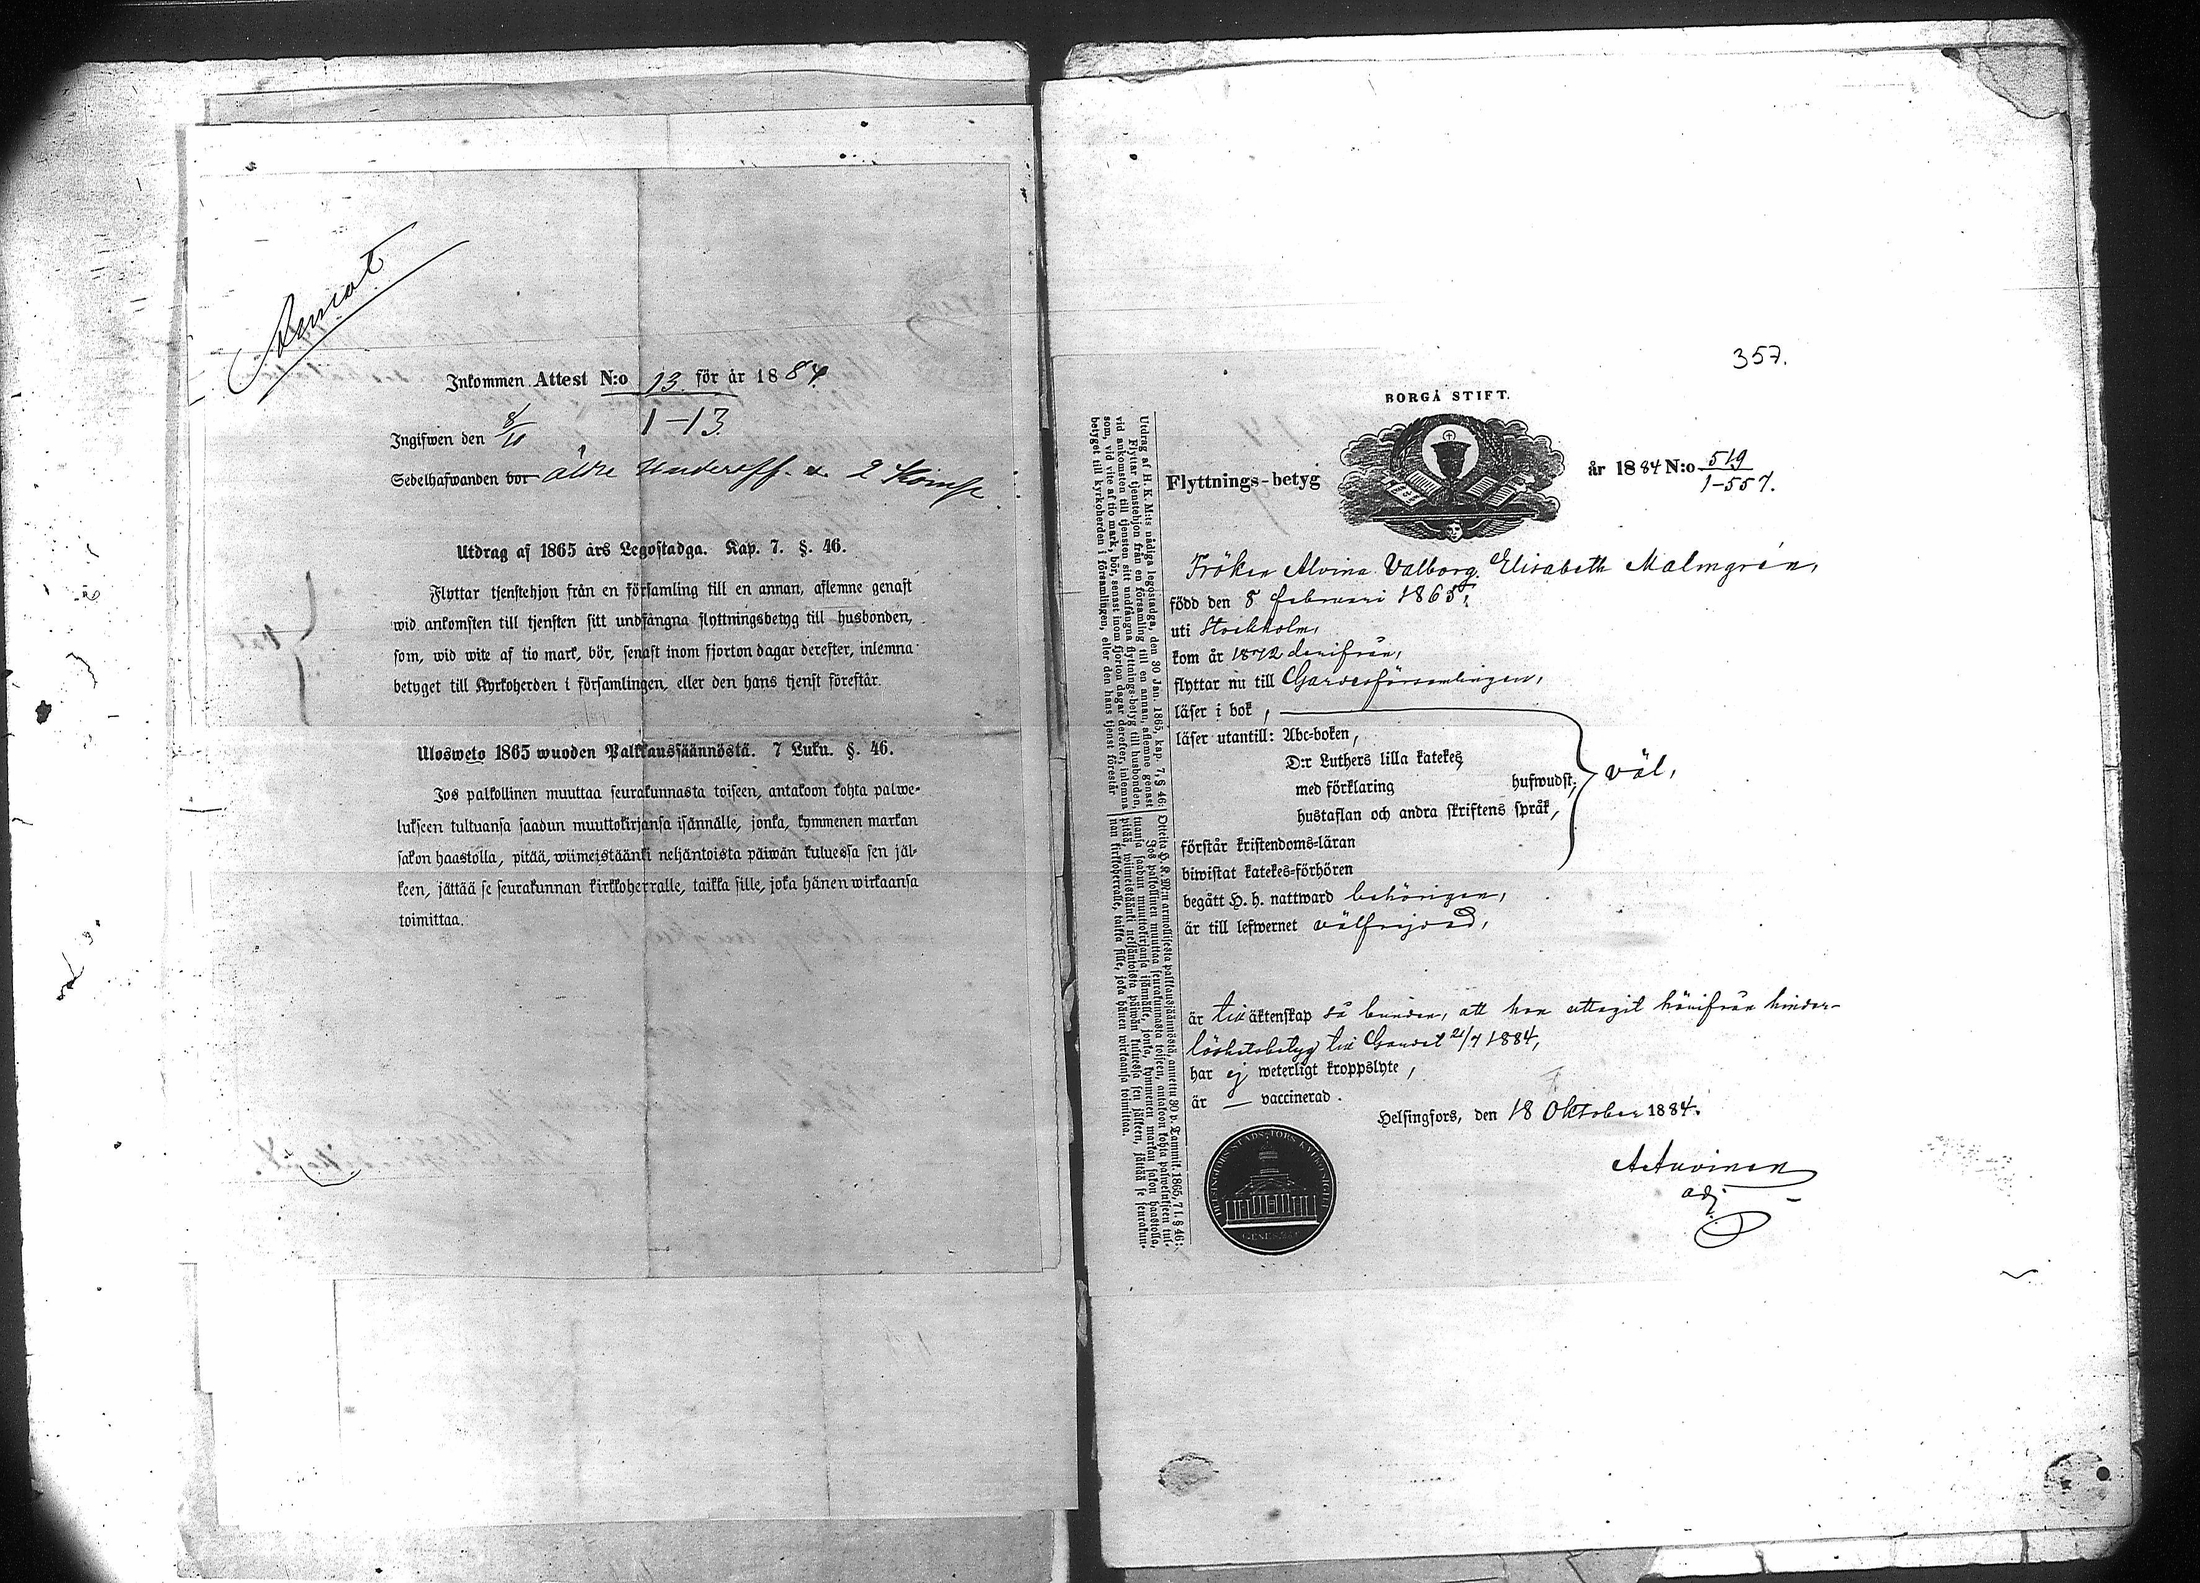 Inkommen Attest N:o 13 för år 1884
1-13
Ingifwen den 8/10
Sedelhafwanden bor äldre Underoff. 2 Komp
Utdrag af 1865 års Legostadga. Kap. 7. §. 46.
Flyttar tjenstehjon från en församling till en annan, aflemne genast
wid ankomsten till tjensten sitt undfångna flyttningsbetyg till husbonden,
som, wid wite af tio mark, bör, senast inom fjorton dagar derefter, inlemna
betyget till Kyrkoherden i församlingen, eller den hans tjenst förestår.
Ulosweto 1865 wuoden Palkkaussäännöstä. 7 Luku. §. 46.
Jos palkollinen muuttaa seurakunnasta toiseen, antakoon kohta palwe-
lukseen tultuansa saadun muuttokirjansa isännälle, jonka, kymmenen markan
sakon haastolla, pitää, wiimeistäänki neljäntoista päiwän kuluessa sen jäl-
keen, jättää se seurakunnan kirkkoherralle, taikka sille, joka hänen wirkaansa
toimittaa.
357.
BORGÅ STIFT.
Flyttnings-betyg år 1884 N:o 519
1-557.
Fröken Alvina Valborg Elisabeth Malmgrén,
född den 8 februari 1865,
uti Stockholm,
kom år 1872 derifrån,
flyttar nu till Gardesförsamlingen,
läser i bok,
läser utantill: Abc-boken,
D:r Luthers lilla katekes,
med förklaring hufwudst.,
väl,
hustaflan och andra skriftens språk,
förstår kristendoms-läran
biwistat katekes-förhören
begått H. h. nattward behörigen,
är till lefwernet välfrejdad,
är till äktenskap så bunden, att hon uttagit härifrån hinder-
löshetsbetyg till Gardet 21/7 1884,
har ej weterligt kroppslyte,
är — vaccinerad.
Helsingfors, den 18 Oktober 1884.
A Auvinen
adj.
Utdrag af H. K. M:ts nådiga legostadga, den 30 Jan. 1865, kap. 7, § 46:
Flyttar tjenstehjon från en församling till en annan, aflemne genast
vid ankomsten till tjensten sitt undfångna flyttnings-betyg till husbonden,
som, vid vite af tio mark, bör, senast inom fjorton dagar derefter, inlemna
betyget till kyrkoherden i församlingen, eller den hans tjenst förestår
Otteita H. K. M:n armollisesta palkkaussäännöstä, annettu 30 p. Tammik. 1865, 7 l. § 46:
Jos palkollinen muuttaa seurakunnasta toiseen, antakoon kohta palwelukseen tul-
tuansa saadun muuttokirjansa isännälle, jonka, kymmenen markan sakon haastolla,
pitää, wiimeistäänki neljäntoista päiwän kuluessa sen jälkeen, jättää se seurakun-
nan kirkkoherralle, taikka sille, joka hänen wirkaansa toimittaa.